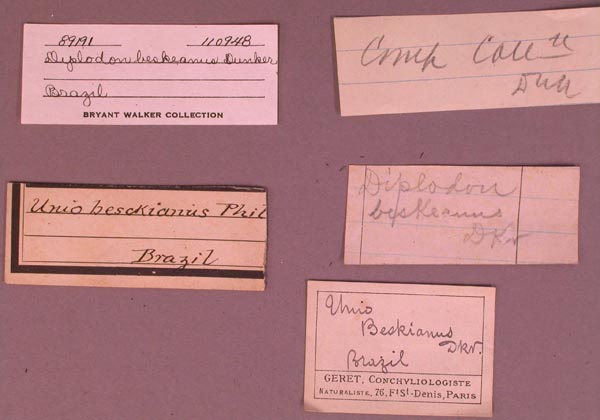 89191 110948
Diplodon beskeanus Dunker
Brazil
BRYANT WALKER COLLECTION
Comp Coll
Unio besckianus Phil
Brazil
Diplodon
beskeanus
Dkr
Unio
Beskianus
Dkr.
Brazil
GERET, CONCHYLIOLOGISTE
NATURALISTE, 76, Fg St-Denis, PARIS